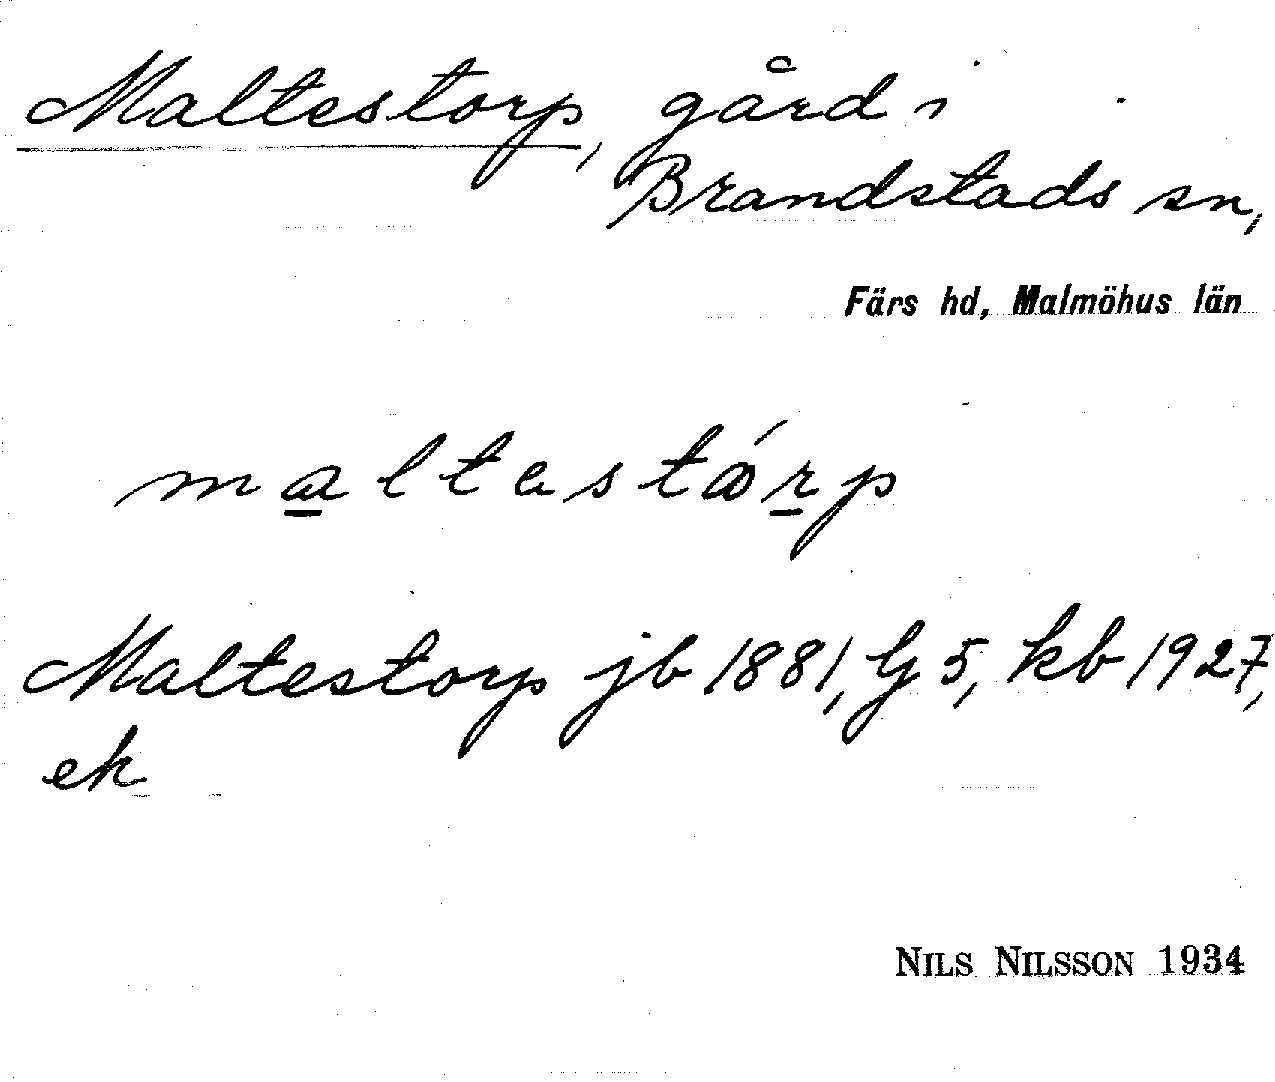 Maltestorp, gård i
Brandstads sn,
Färs hd, Malmöhus län
maltestórp
Maltestorp jb 1881, Lj 5, kb 1927,
ek
NILS NILSSON 1934